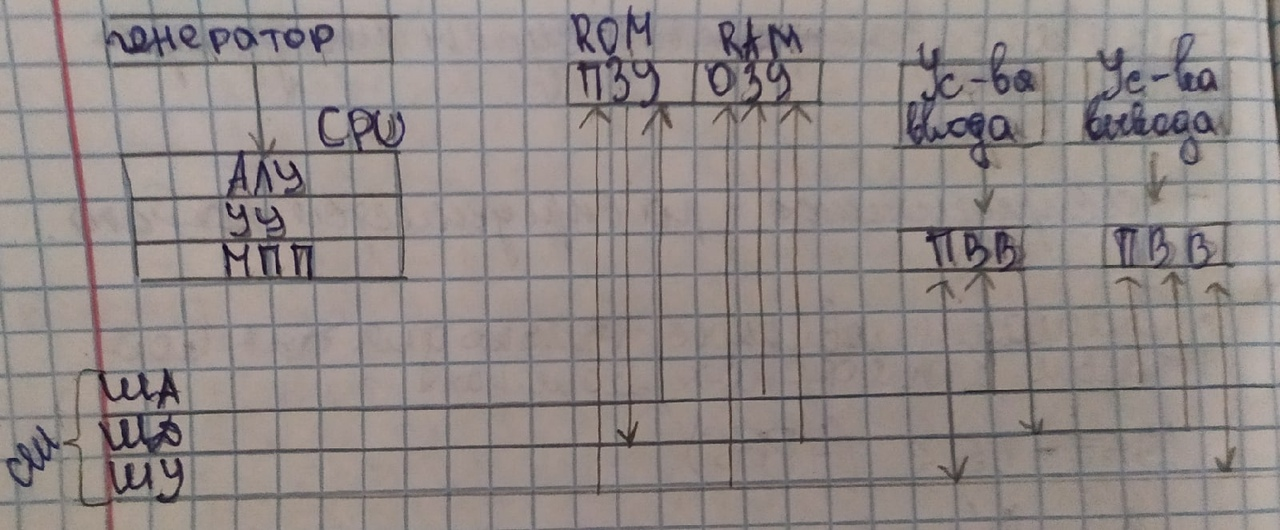 генератор
CPU
АЛУ
УУ
МПП
ROM
ПЗУ
RAM
ОЗУ
Ус-ва
ввода
Ус-ва
вывода
ПВВ
ПВВ
СМ
ША
ШД
ШУ